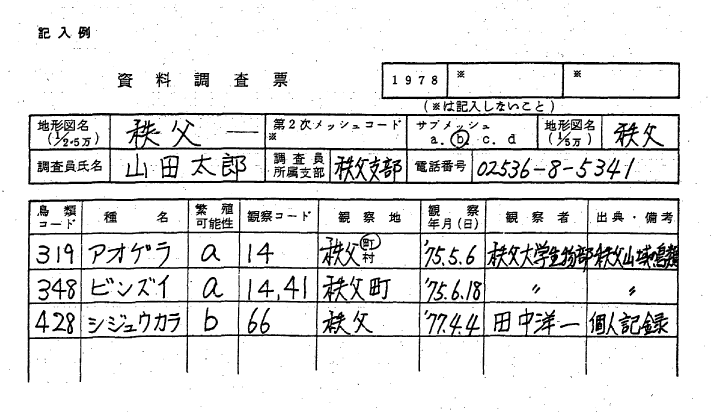 記入例
資料調査票
1978 ※ ※
(※は記入しないこと)
地形図名(1/2.5万) 秩父 — 第2次メッシュコード ※ サブメッシュ a. b. c. d 地形図名(1/5万) 秩父
調査員氏名 山田太郎 調査員所属支部 秩父支部 電話番号 02536-8-5341
鳥類コード 種名 繁殖可能性 観察コード 観察地 観察年月(日) 観察者 出典・備考
319 アオゲラ a 14 秩父町村 '75.5.6 秩父大学生物部 秩父山域の鳥類
348 ビンズイ a 14,41 秩父町 '75.6.18 〃 〃
428 シジュウカラ b 66 秩父 '77.4.4 田中洋一 個人記録